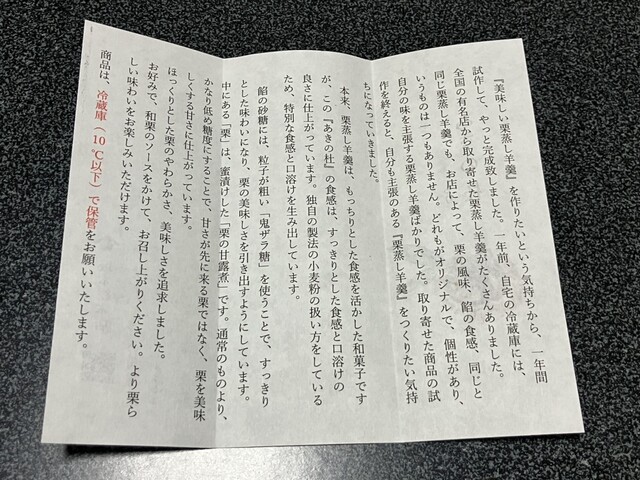 『美味しい栗蒸し羊羹』を作りたいという気持ちから、一年間
試作して、やっと完成致しました。一年前、自宅の冷蔵庫には、
全国の有名店から取り寄せた栗蒸し羊羹がたくさんありました。
同じ栗蒸し羊羹でも、お店によって、栗の風味、餡の食感、同じと
いうものは一つもありません。どれもがオリジナルで、個性があり、
自分の味を主張する栗蒸し羊羹ばかりでした。取り寄せた商品の試
作を終えると、自分も主張のある『栗蒸し羊羹』をつくりたい気持
ちになっていきました。
本来、栗蒸し羊羹は、もっちりとした食感を活かした和菓子です
が、この『あきの杜』の食感は、すっきりとした食感と口溶けの
良さに仕上がっています。独自の製法の小麦粉の扱い方をしている
ため、特別な食感と口溶けを生み出しています。
餡の砂糖には、粒子が粗い「鬼ザラ糖」を使うことで、すっきり
とした味わいになり、栗の美味しさを引き出すようにしています。
中にある「栗」は、蜜漬けした「栗の甘露煮」です。通常のものより、
かなり低め糖度にすることで、甘さが先に来る栗ではなく、栗を美味
しくする甘さに仕上がっています。
ほっくりとした栗のやわらかさ、美味しさを追求しました。
お好みで、和栗のソースをかけて、お召し上がりください。より栗ら
しい味わいをお楽しみいただけます。
商品は、冷蔵庫（10℃以下）で保管をお願いいたします。